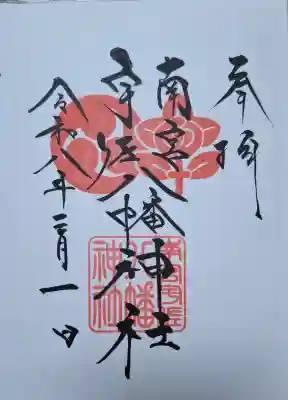 奉拝
南宮
宇佐
八幡神社
令和八年二月一日
南宮宇佐
八幡
神社